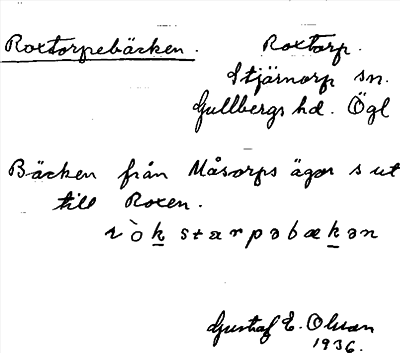 Roxtorpebäcken.
Roxtorp.
Stjärnorp sn.
Gullbergs hd. Ögl
Bäcken från Måsorps ägor s ut
till Roxen.
ròkstarpəbækən
Gustaf E. Olsson
1936.